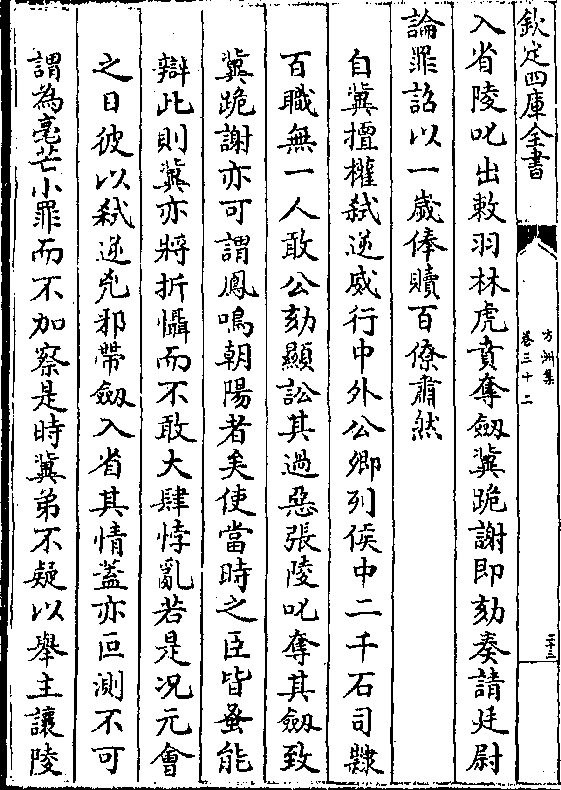 欽定四庫全書
方洲集
卷三十二
二十三
入省陵叱出敕羽林虎賁奪劔冀跪謝即劾奏請廷尉
論罪詔以一歲俸贖百僚肅然
自冀擅權弑逆威行中外公卿列侯中二千石司隸
百職無一人敢公劾顯訟其過惡張陵叱奪其劔致
冀跪謝亦可謂鳳鳴朝陽者矣使當時之臣皆蚤能
辯此則冀亦將折懾而不敢大肆悖亂若是况元會
之日彼以弑逆兇邪帶劔入省其情蓋亦叵測不可
謂為毫芒小罪而不加察是時冀弟不疑以舉主讓陵